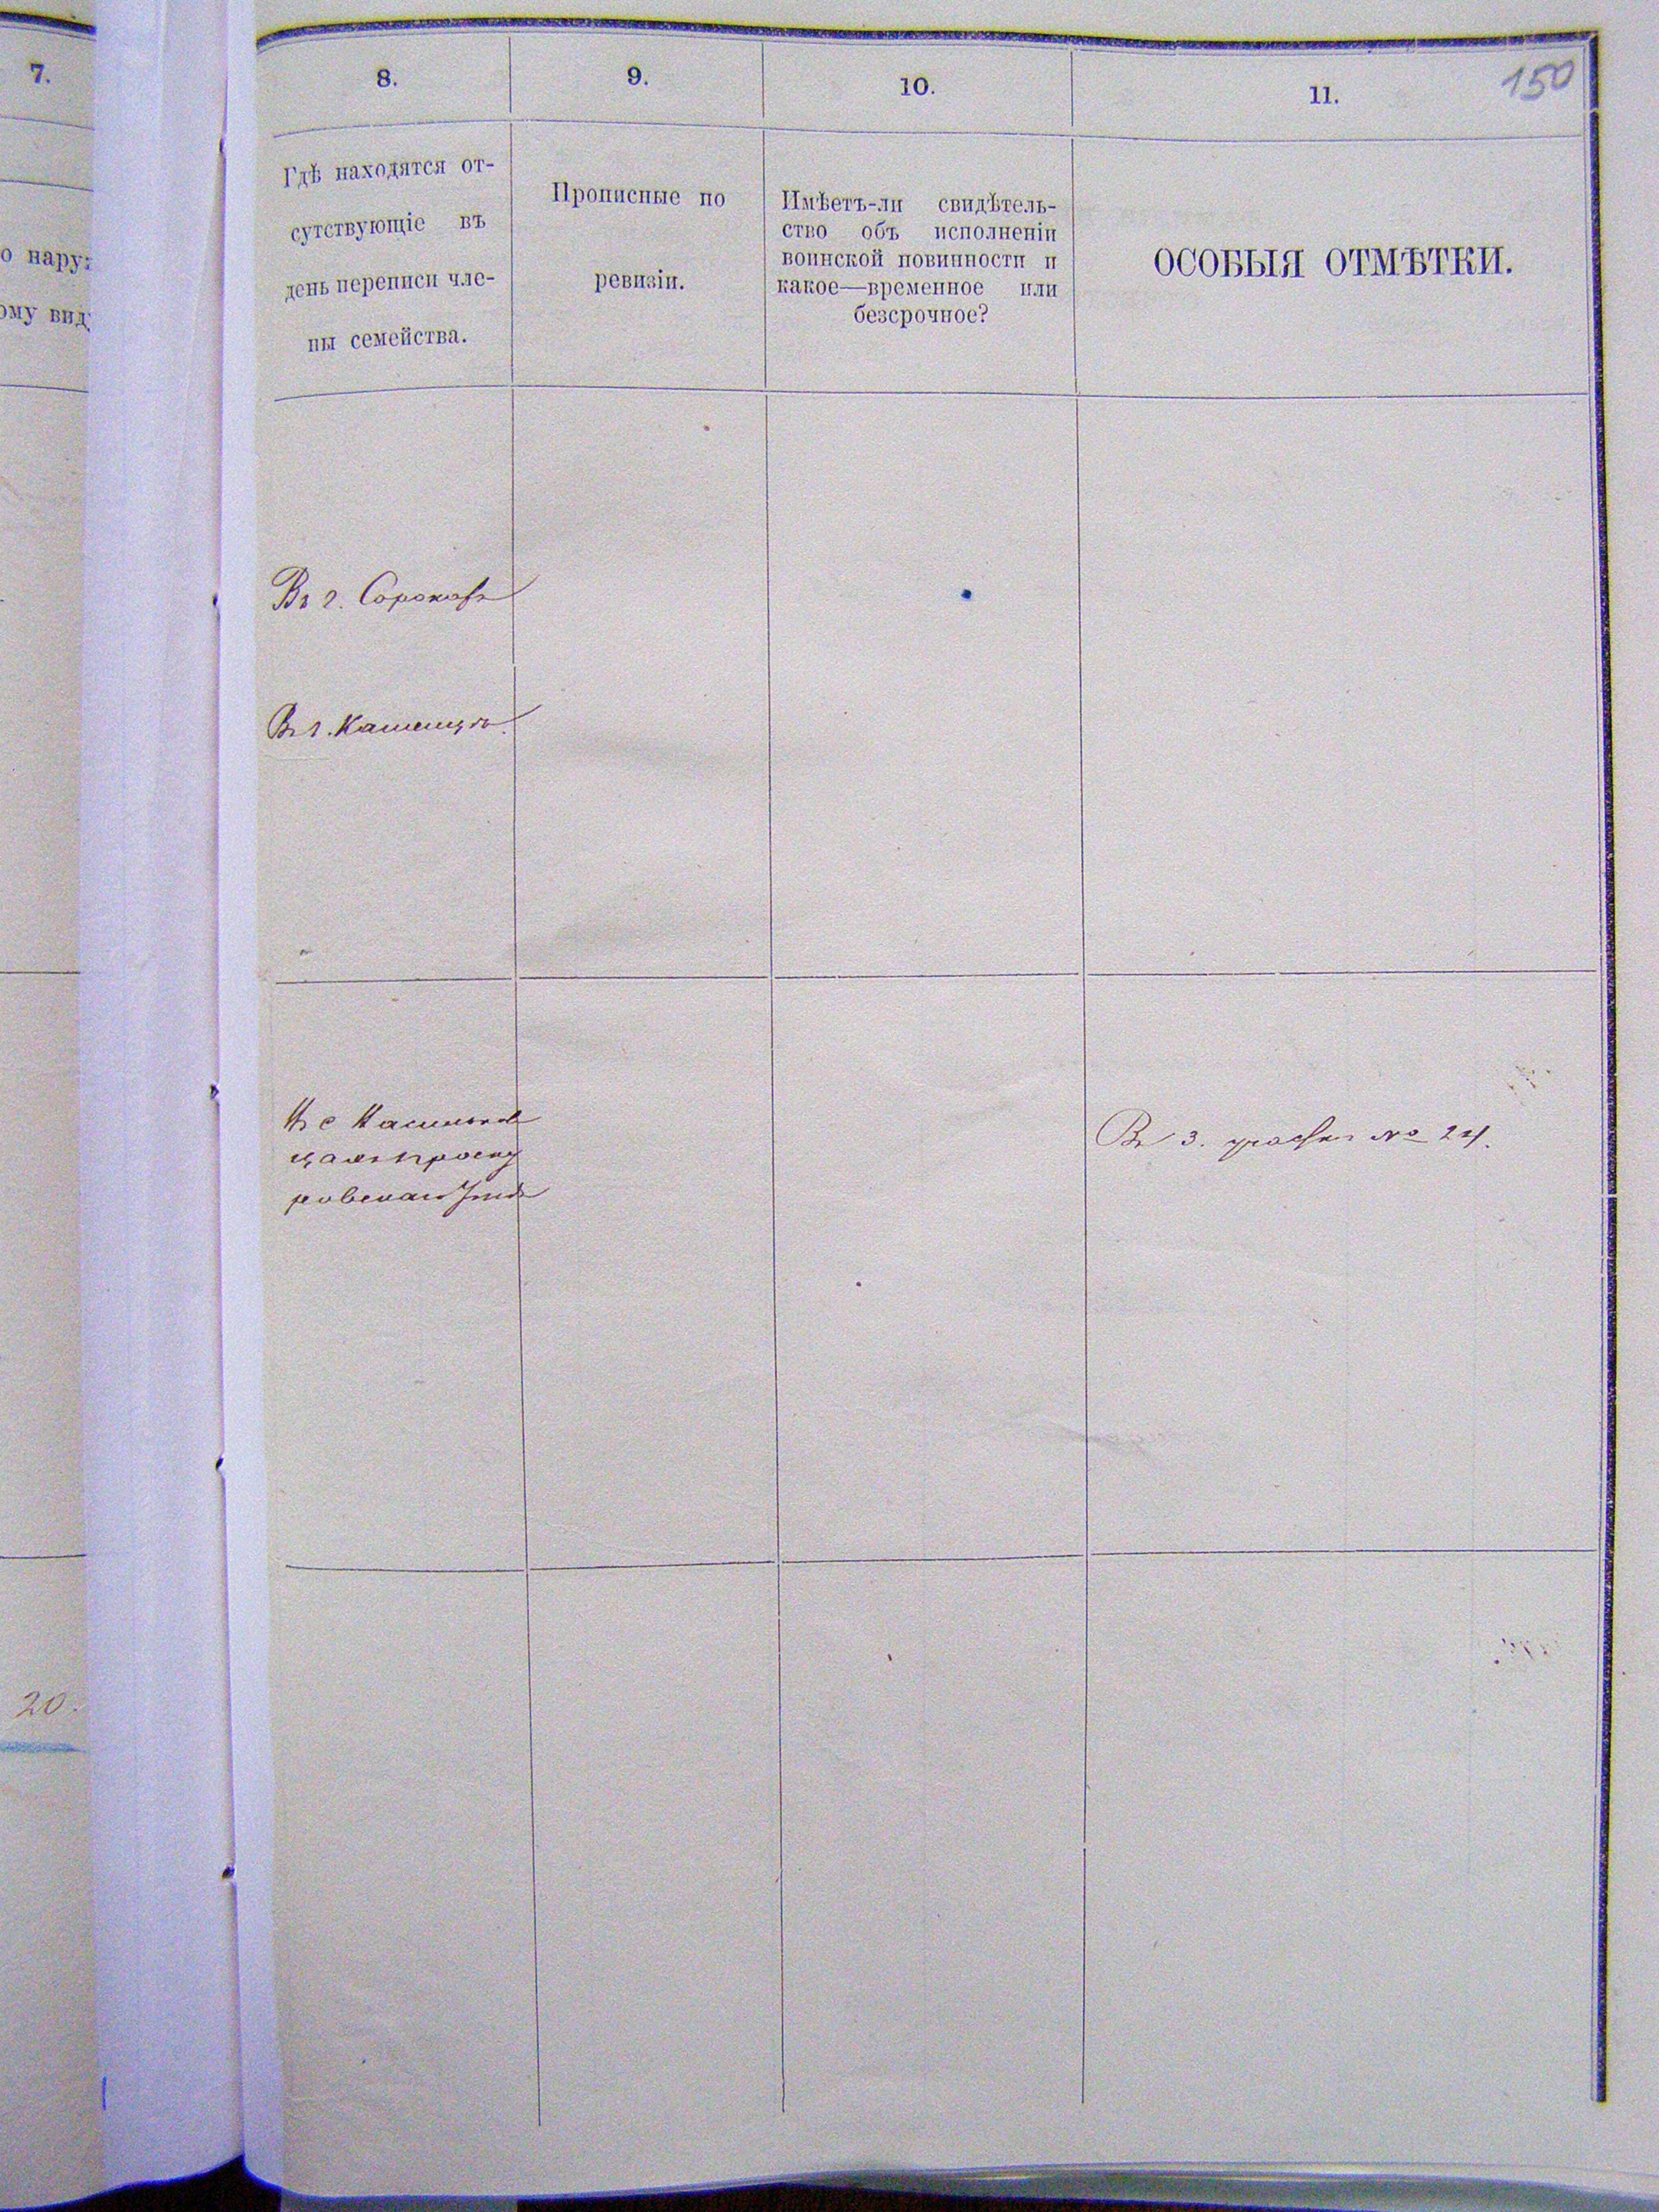 7.
о наруж
ому вид
20.
150
8.
9.
10.
11.
Гдѣ находятся от-
сутствующіе въ
день переписи чле-
ны семейства.
Прописные по
ревизіи.
Имѣетъ-ли свидѣтель-
ство объ исполненіи
воинской повинности и
какое—временное или
безсрочное?
ОСОБЫЯ ОТМѢТКИ.
Въ г. Сорокахъ
Въ г.
Въ 3. участкѣ № 24.